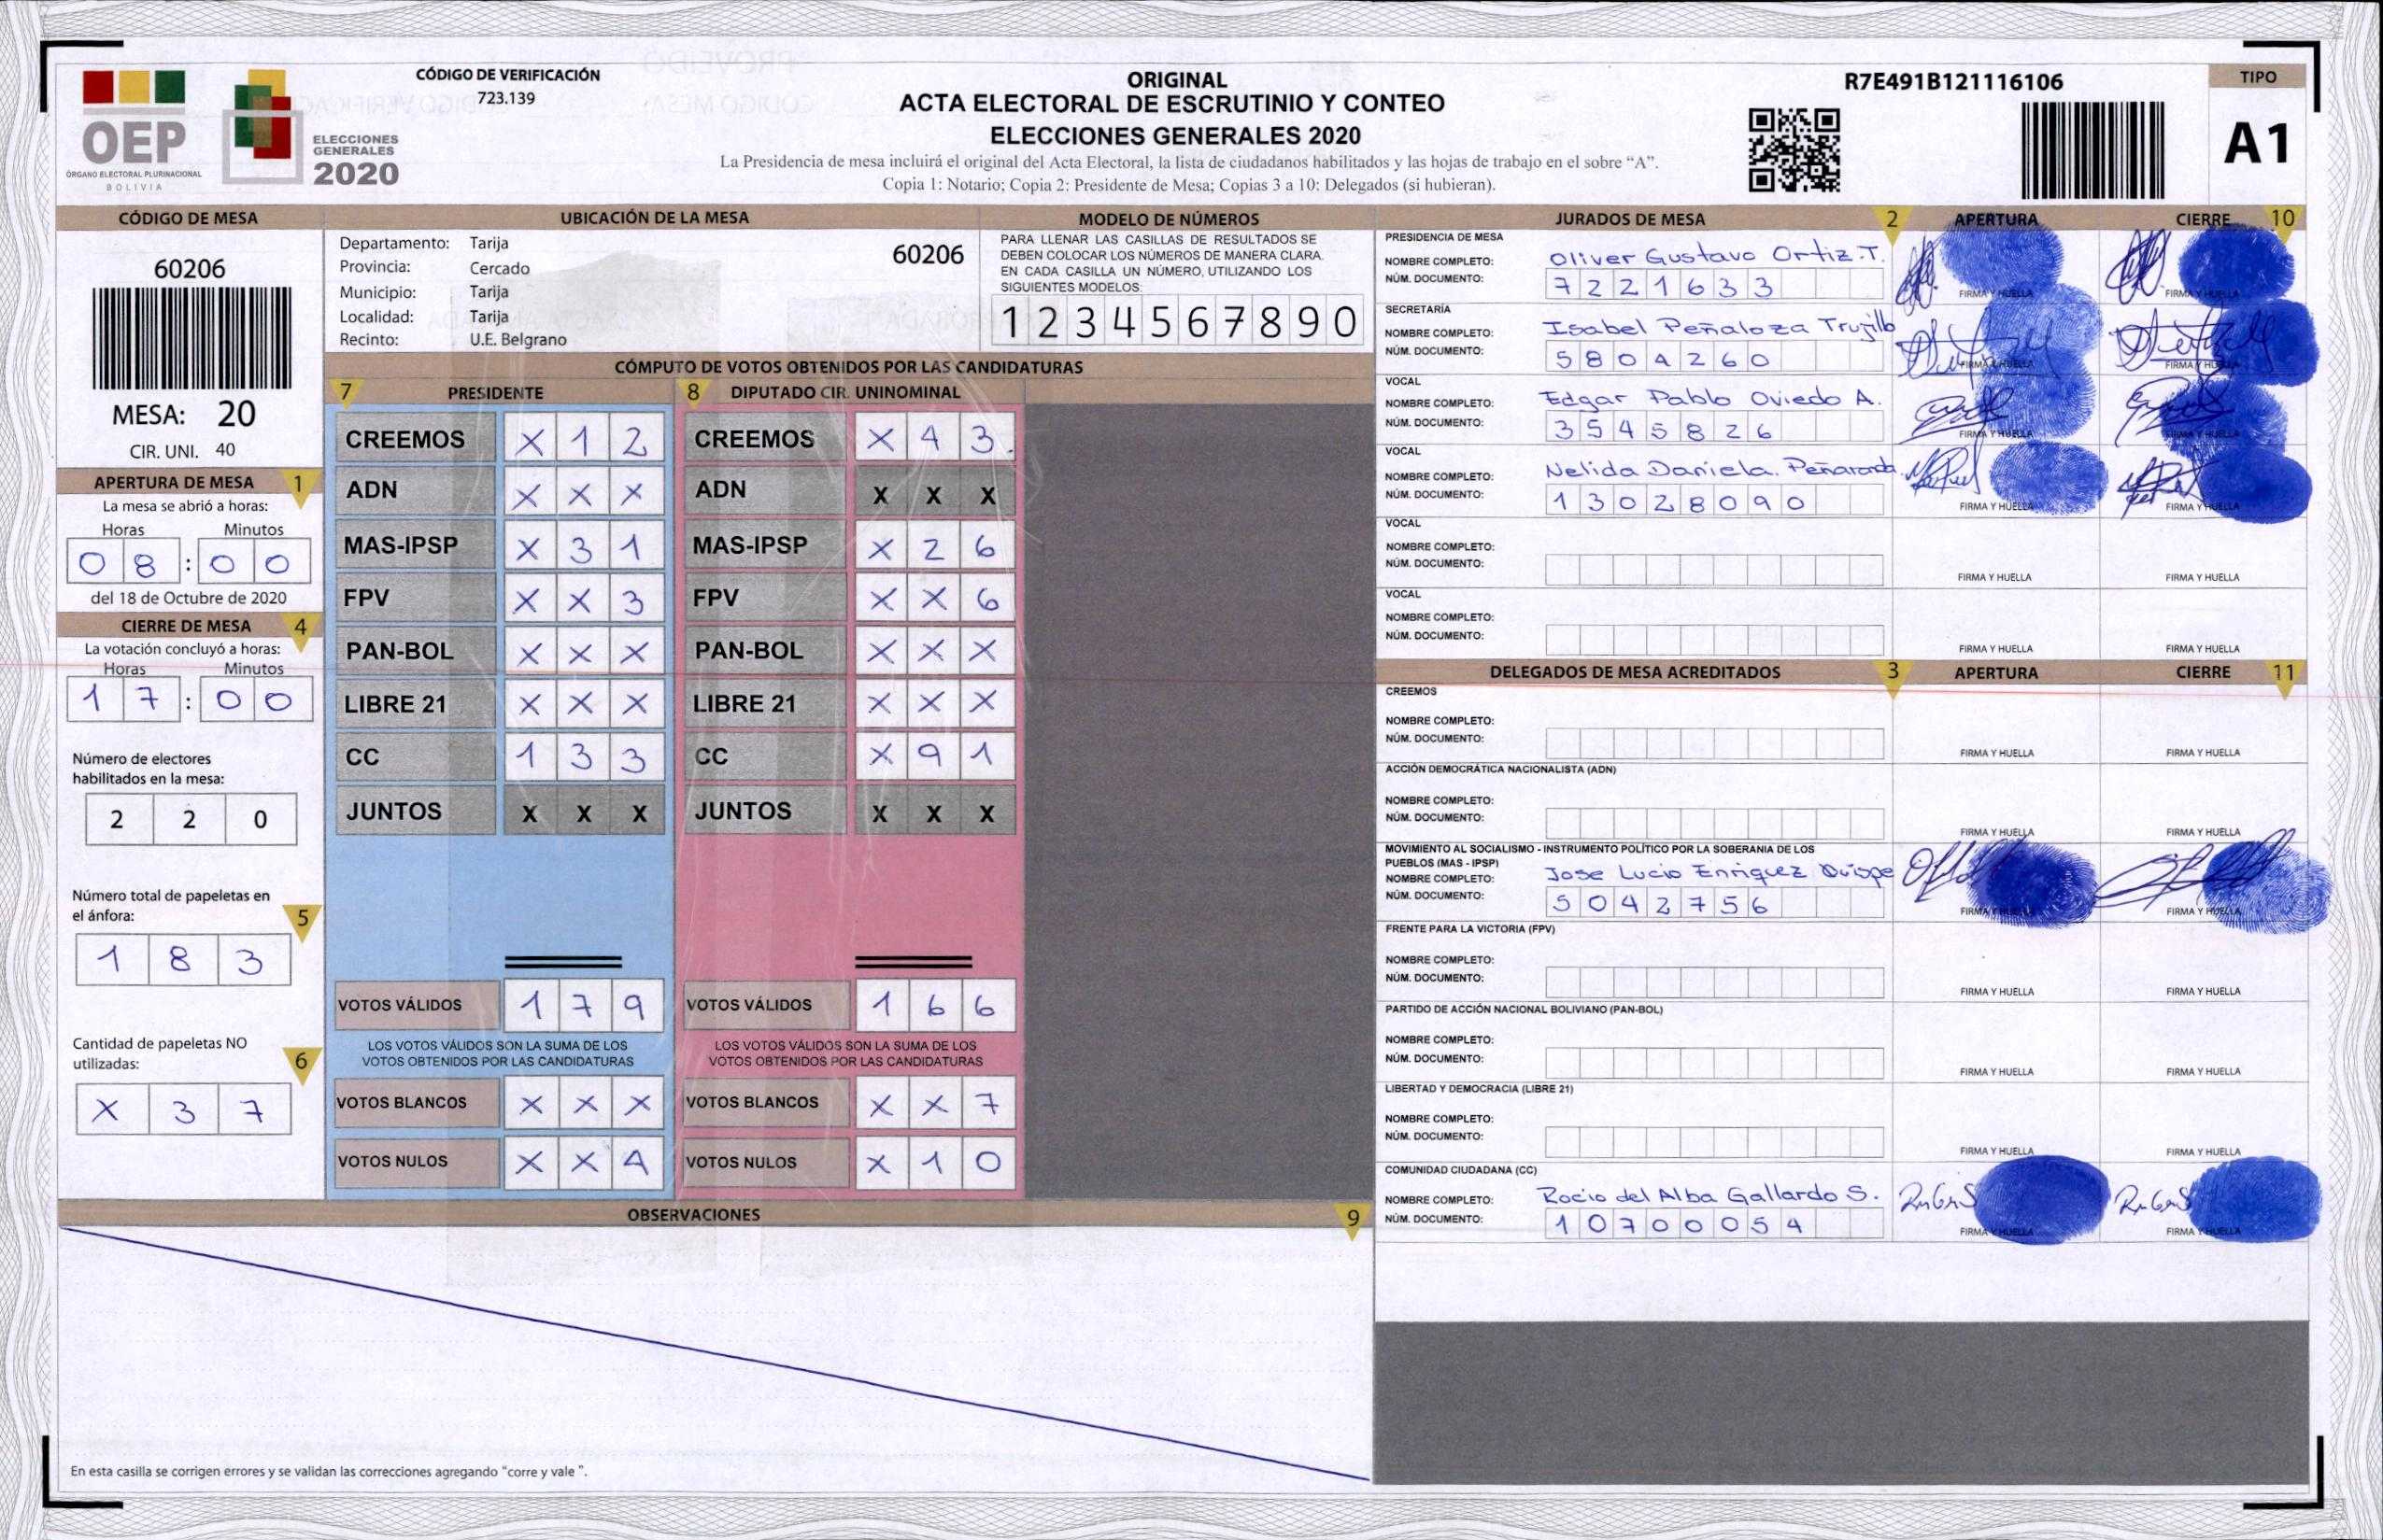 OEP
ÓRGANO ELECTORAL PLURINACIONAL
BOLIVIA
ELECCIONES
GENERALES
2020
CÓDIGO DE VERIFICACIÓN
723.139
ORIGINAL
ACTA ELECTORAL DE ESCRUTINIO Y CONTEO
ELECCIONES GENERALES 2020
La Presidencia de mesa incluirá el original del Acta Electoral, la lista de ciudadanos habilitados y las hojas de trabajo en el sobre “A”.
Copia 1: Notario; Copia 2: Presidente de Mesa; Copias 3 a 10: Delegados (si hubieran).
R7E491B121116106
TIPO
A1
CÓDIGO DE MESA
60206
MESA: 20
CIR. UNI. 40
APERTURA DE MESA 1
La mesa se abrió a horas:
Horas Minutos
0 8 : 0 0
del 18 de Octubre de 2020
CIERRE DE MESA 4
La votación concluyó a horas:
Horas Minutos
1 7 : 0 0
Número de electores
habilitados en la mesa:
2 2 0
Número total de papeletas en
el ánfora: 5
1 8 3
Cantidad de papeletas NO
utilizadas: 6
X 3 7
UBICACIÓN DE LA MESA
Departamento: Tarija 60206
Provincia: Cercado
Municipio: Tarija
Localidad: Tarija
Recinto: U.E. Belgrano
MODELO DE NÚMEROS
PARA LLENAR LAS CASILLAS DE RESULTADOS SE
DEBEN COLOCAR LOS NÚMEROS DE MANERA CLARA.
EN CADA CASILLA UN NÚMERO, UTILIZANDO LOS
SIGUIENTES MODELOS:
1 2 3 4 5 6 7 8 9 0
CÓMPUTO DE VOTOS OBTENIDOS POR LAS CANDIDATURAS
7 PRESIDENTE 8 DIPUTADO CIR. UNINOMINAL
CREEMOS X 1 2 CREEMOS X 4 3
ADN X X X ADN X X X
MAS-IPSP X 3 1 MAS-IPSP X 2 6
FPV X X 3 FPV X X 6
PAN-BOL X X X PAN-BOL X X X
LIBRE 21 X X X LIBRE 21 X X X
CC 1 3 3 CC X 9 1
JUNTOS X X X JUNTOS X X X
VOTOS VÁLIDOS 1 7 9 VOTOS VÁLIDOS 1 6 6
LOS VOTOS VÁLIDOS SON LA SUMA DE LOS LOS VOTOS VÁLIDOS SON LA SUMA DE LOS
VOTOS OBTENIDOS POR LAS CANDIDATURAS VOTOS OBTENIDOS POR LAS CANDIDATURAS
VOTOS BLANCOS X X X VOTOS BLANCOS X X 7
VOTOS NULOS X X 4 VOTOS NULOS X 1 0
OBSERVACIONES 9
En esta casilla se corrigen errores y se validan las correcciones agregando "corre y vale ".
JURADOS DE MESA 2 APERTURA CIERRE 10
PRESIDENCIA DE MESA
NOMBRE COMPLETO: Oliver Gustavo Ortiz.T.
NÚM. DOCUMENTO: 7 2 2 1 6 3 3
FIRMA Y HUELLA FIRMA Y HUELLA
SECRETARÍA
NOMBRE COMPLETO: Isabel Peñaloza Trujillo
NÚM. DOCUMENTO: 5 8 0 4 2 6 0
FIRMA Y HUELLA FIRMA Y HUELLA
VOCAL
NOMBRE COMPLETO: Edgar Pablo Oviedo A.
NÚM. DOCUMENTO: 3 5 4 5 8 2 6
FIRMA Y HUELLA FIRMA Y HUELLA
VOCAL
NOMBRE COMPLETO: Nelida Daniela. Peñaranda.
NÚM. DOCUMENTO: 1 3 0 2 8 0 9 0
FIRMA Y HUELLA FIRMA Y HUELLA
VOCAL
NOMBRE COMPLETO:
NÚM. DOCUMENTO:
FIRMA Y HUELLA FIRMA Y HUELLA
VOCAL
NOMBRE COMPLETO:
NÚM. DOCUMENTO:
FIRMA Y HUELLA FIRMA Y HUELLA
DELEGADOS DE MESA ACREDITADOS 3 APERTURA CIERRE 11
CREEMOS
NOMBRE COMPLETO:
NÚM. DOCUMENTO:
FIRMA Y HUELLA FIRMA Y HUELLA
ACCIÓN DEMOCRÁTICA NACIONALISTA (ADN)
NOMBRE COMPLETO:
NÚM. DOCUMENTO:
FIRMA Y HUELLA FIRMA Y HUELLA
MOVIMIENTO AL SOCIALISMO - INSTRUMENTO POLÍTICO POR LA SOBERANIA DE LOS
PUEBLOS (MAS - IPSP)
NOMBRE COMPLETO: Jose Lucio Enriquez Quispe
NÚM. DOCUMENTO: 5 0 4 2 7 5 6
FIRMA Y HUELLA FIRMA Y HUELLA
FRENTE PARA LA VICTORIA (FPV)
NOMBRE COMPLETO:
NÚM. DOCUMENTO:
FIRMA Y HUELLA FIRMA Y HUELLA
PARTIDO DE ACCIÓN NACIONAL BOLIVIANO (PAN-BOL)
NOMBRE COMPLETO:
NÚM. DOCUMENTO:
FIRMA Y HUELLA FIRMA Y HUELLA
LIBERTAD Y DEMOCRACIA (LIBRE 21)
NOMBRE COMPLETO:
NÚM. DOCUMENTO:
FIRMA Y HUELLA FIRMA Y HUELLA
COMUNIDAD CIUDADANA (CC)
NOMBRE COMPLETO: Rocio del Alba Gallardo S.
NÚM. DOCUMENTO: 1 0 7 0 0 0 5 4
FIRMA Y HUELLA FIRMA Y HUELLA